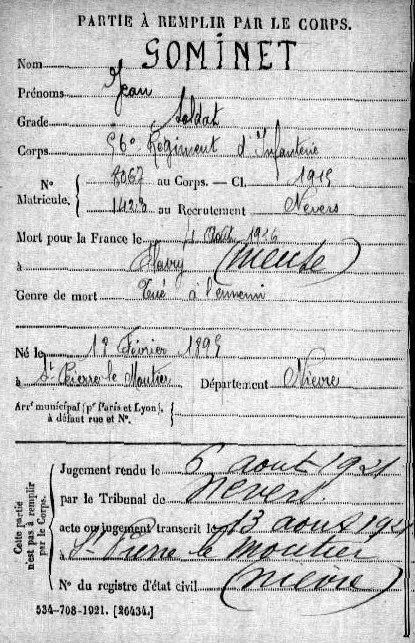 PARTIE À REMPLIR PAR LE CORPS.
Nom GOMINET
Prénoms Jean
Grade Soldat
Corps 56e Régiment d'Infanterie
N° Matricule. 8067 au Corps. — Cl. 1915
1423 au Recrutement Nevers
Mort pour la France le 1916
à (Meuse)
Genre de mort Tué à l'ennemi
Né le 18 Février 1895
à St Pierre le Moutier Département Nièvre
Arr' municipal (p' Paris et Lyon),
à défaut rue et N°.
Cette partie n'est pas à remplir par le Corps.
Jugement rendu le 6 août 1921
par le Tribunal de Nevers
acte ou jugement transcrit le 13 août 1921
à St Pierre le Moutier
N° du registre d'état civil (Nièvre)
534-708-1921. [26434.]